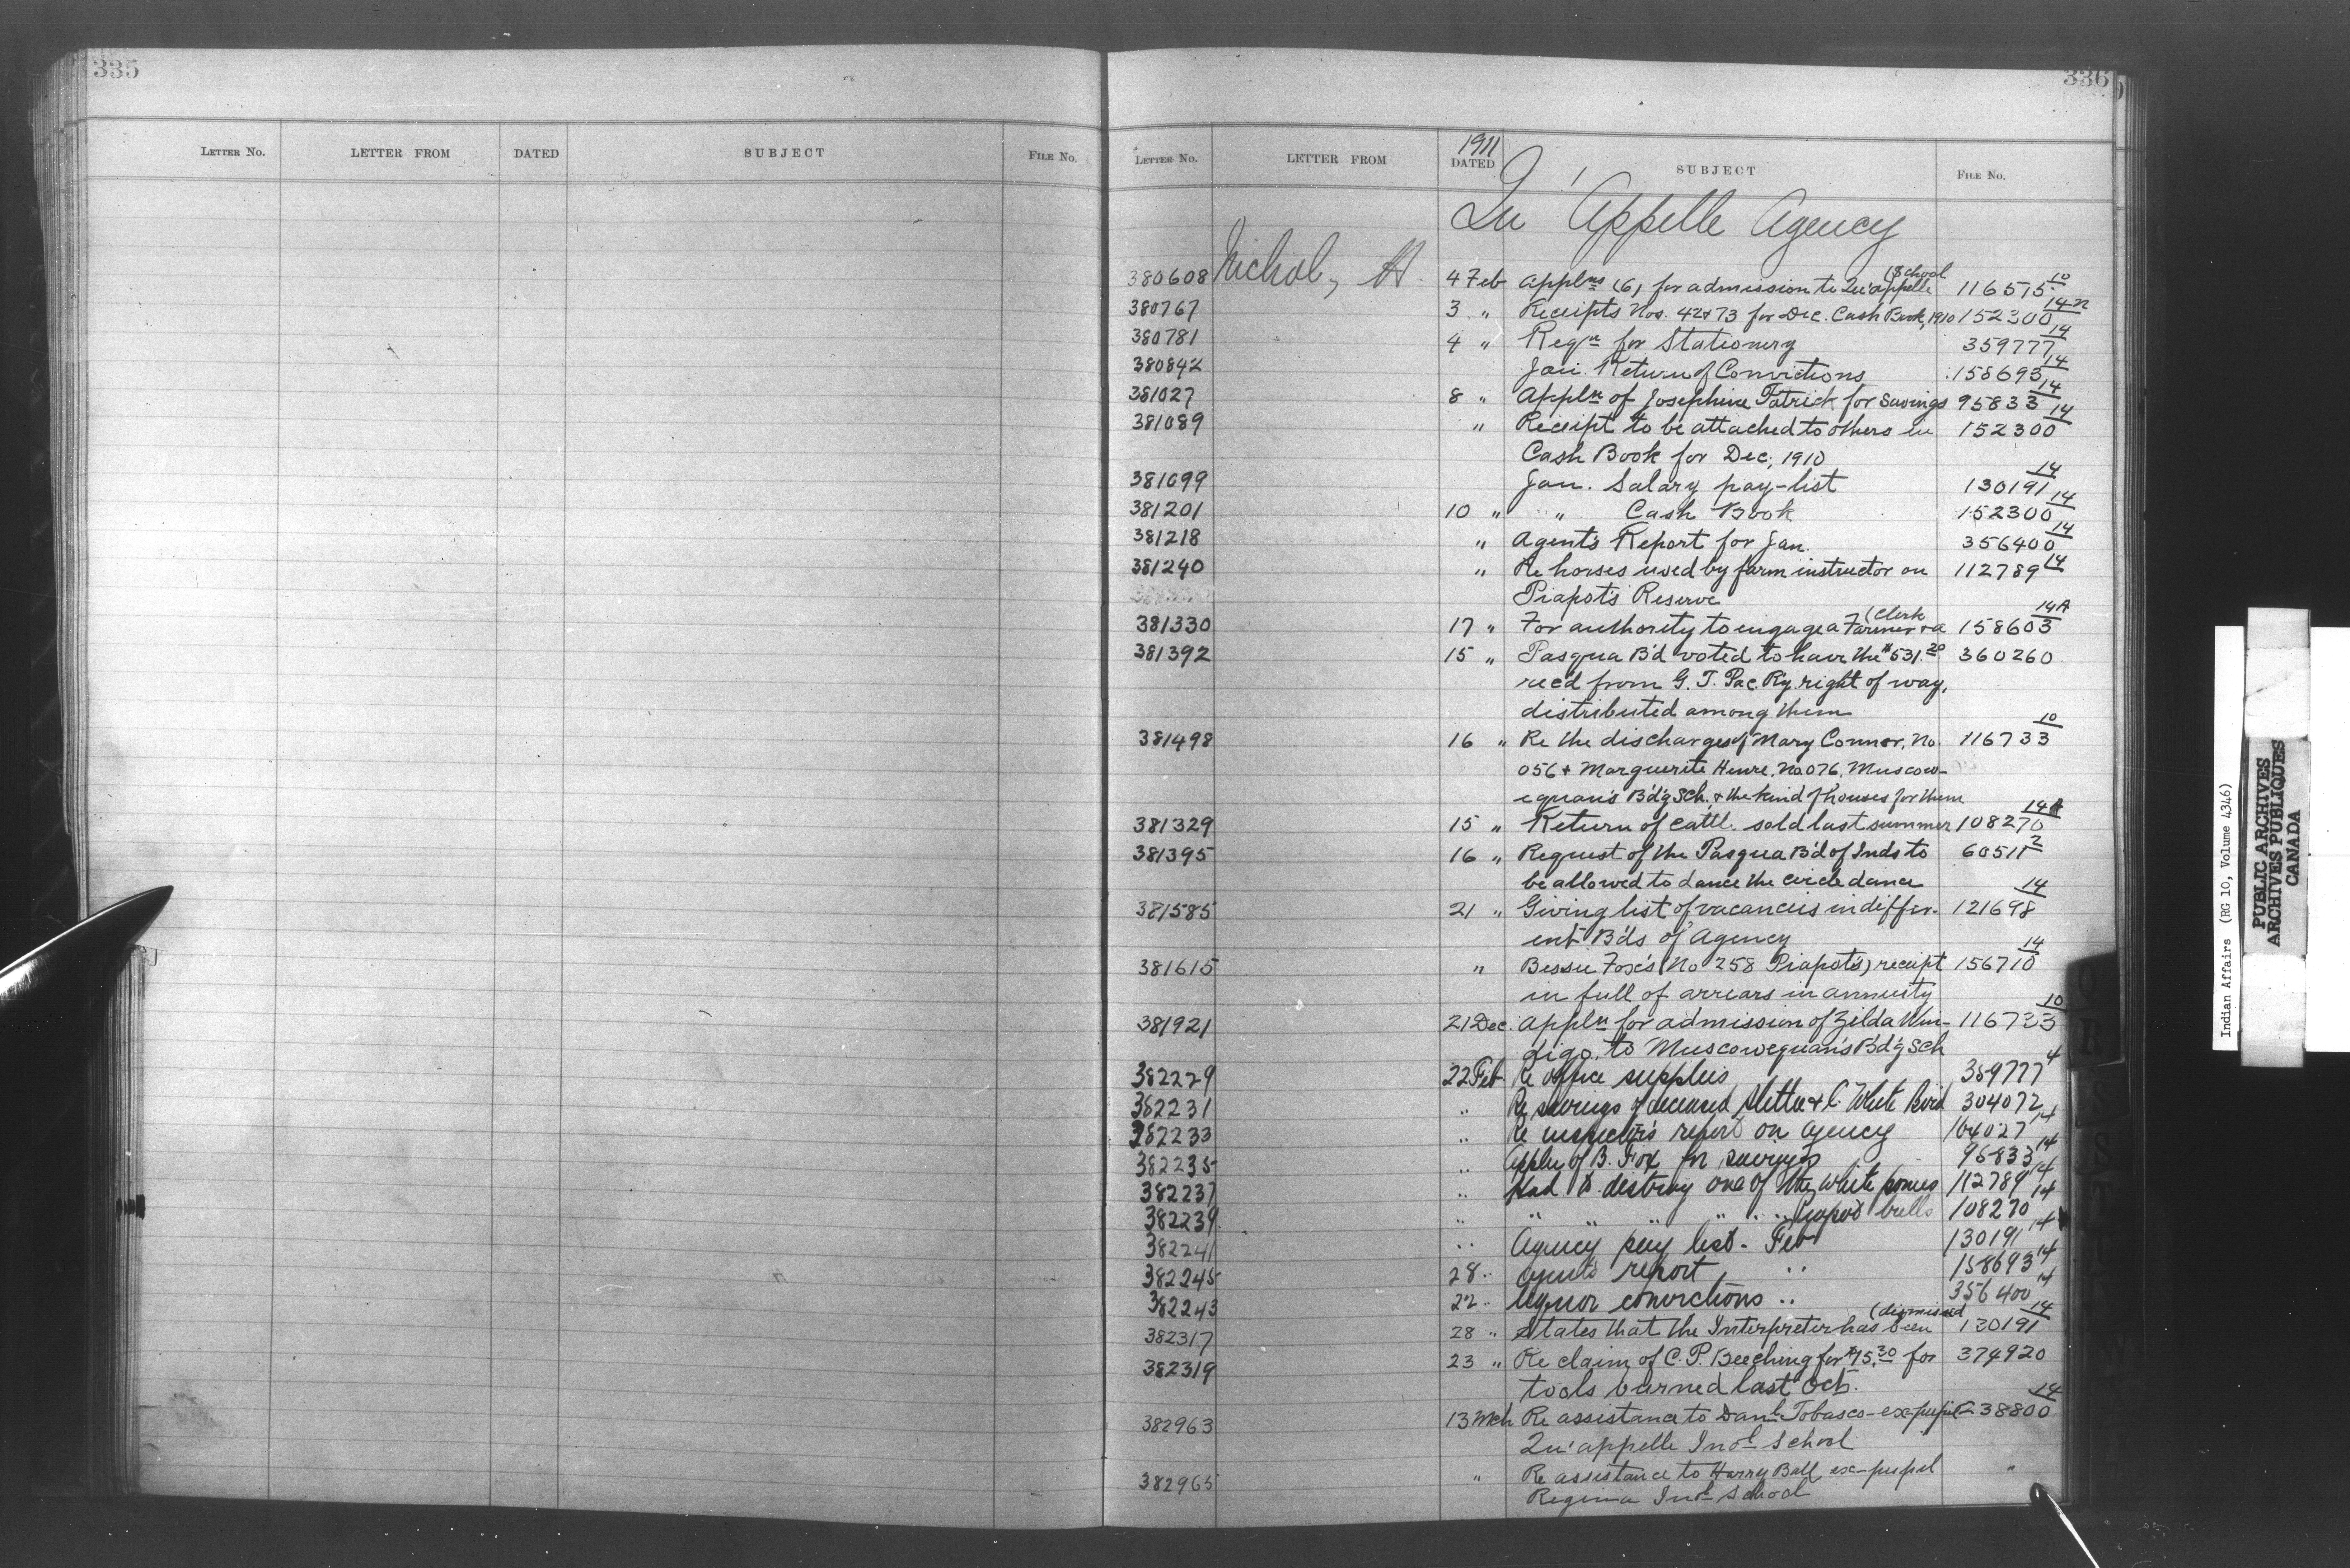 335
336
LETTER NO. LETTER FROM DATED SUBJECT FILE NO.
LETTER NO. LETTER FROM 1911 DATED SUBJECT FILE NO.
Qu'Appelle Agency
380608 Nichol, H. 4 Feb Applns (6) for admission to Qu'appelle (School 116515 10
380767 3 " Receipts Nos. 42 & 73 for Dec. Cash Book, 1910 152300 14
380781 4 " Reqn for Stationery 359777 14
380842 Jan. Return of Convictions 158693 14
381027 8 " Appln of Josephine Patrick for savings 95833 14
381089 " Receipt to be attached to others in 152300 14
Cash Book for Dec, 1910
381099 Jan. Salary pay-list 130191 14
381201 10 " " Cash Book 152300 14
381218 " Agent's Report for Jan. 356400 14
381240 " Re horses used by farm instructor on 112789 14
Piapot's Reserve
381330 17 " For authority to engage a Farmer & a (Clerk 158603 14A
381392 15 " Pasqua B'd voted to have the $531.20 360260
rec'd from G. T. Pac. Ry. right of way,
distributed among them
381498 16 " Re the discharges of Mary Connor, No. 116733 10
056 & Marguerite No. 076, Muscow-
equan's B'd'g Sch. & the kind of houses for them
381329 15 " Return of cattle sold last summer 108270 14A
381395 16 " Request of the Pasqua B'd of Inds to 60511 2
be allowed to dance the circle dance
381585 21 " Giving list of vacancies in differ- 121698 14
ent B'ds of Agency
381615 " Bessie Fox's (No 258 Piapot's) receipt 156710 14
in full of arrears in annuity
381921 21 Dec. Appln for admission of Zilda Win- 116733 10
digo, to Muscowequan's B'd'g Sch
382229 22 Feb Re office supplies 359777 4
382231 " Re savings of deceased & C. White Bird 304072
382233 " Re inspector's report on agency 164027 14
382235 " Appln of B. Fox for savings 95833 14
382237 " Had to destroy one of the white ponies 112789 14
382239 " " " " " " bulls 108270 14
382241 " Agency pay list - Feb 130191 14
382245 28 " Agents report " 158693 14
382243 22 " liquor convictions " 356400 14
382317 28 " States that the Interpreter has been (dismissed 130191 14
382319 23 " Re claim of C. P. Beeching for $15.30 for 374920
tools burned last Oct.
382963 13 Mch Re assistance to Danl Tobasco - ex-pupil 238800 14
Qu'appelle Indl School
382965 " Re assistance to Harry Ball ex-pupil "
Regina Indl School
Indian Affairs (RG 10, Volume 4346)
PUBLIC ARCHIVES
ARCHIVES PUBLIQUES
CANADA